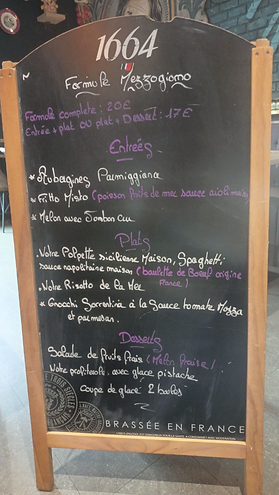 1664
Formule Mezzogiorno
Formule complète : 20€
Entrée + plat ou plat + Dessert : 17€
Entrées
* Aubergines Parmiggiana
* Fritto Misto (poisson frits de mer sauce aioli maison)
* Melon avec Jambon Cru
Plats
. Notre Polpette sicilienne Maison, Spaghetti
sauce napolitaine maison (boulette de Boeuf origine
France)
. Notre Risotto de la Mer
* Gnocchi Sorrentina à la Sauce tomate Mozza
et parmesan.
Desserts
Salade de fruits frais (Melon fraise)
Notre profiterole avec glace pistache
coupe de glace 2 boules
BRASSÉE EN FRANCE